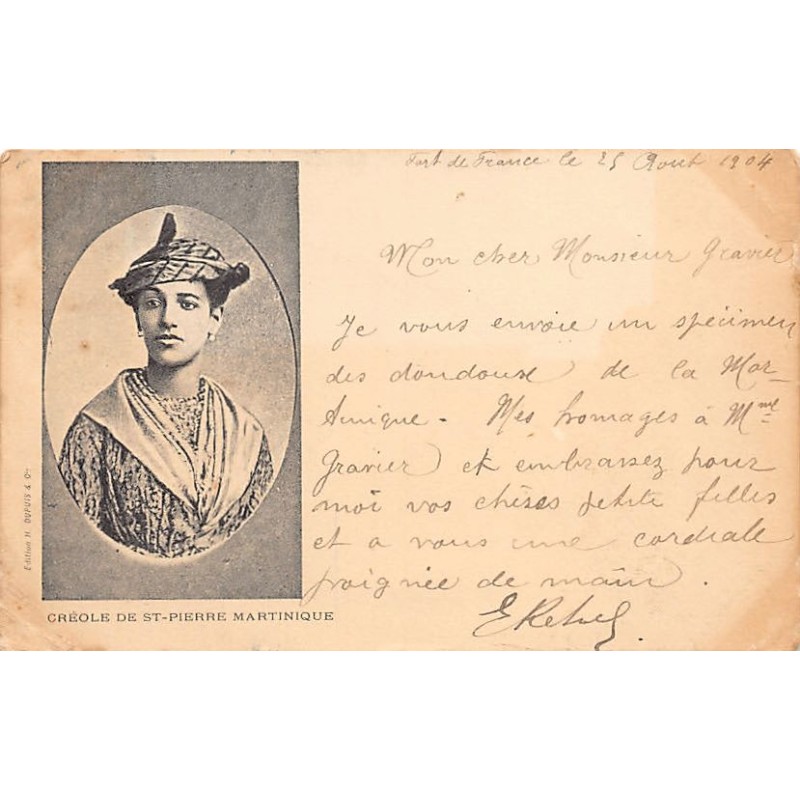 Fort de France le 25 Aout 1904
Mon cher Monsieur Gravier
Je vous envoie un spécimen
des doudouse de la Mar-
tinique - Mes homages à Mme
Gravier et embrassez pour
moi vos chères petite filles
et a vous une cordiale
poignée de main.
Edition H. DUPUIS & Cie
CRÉOLE DE ST-PIERRE MARTINIQUE